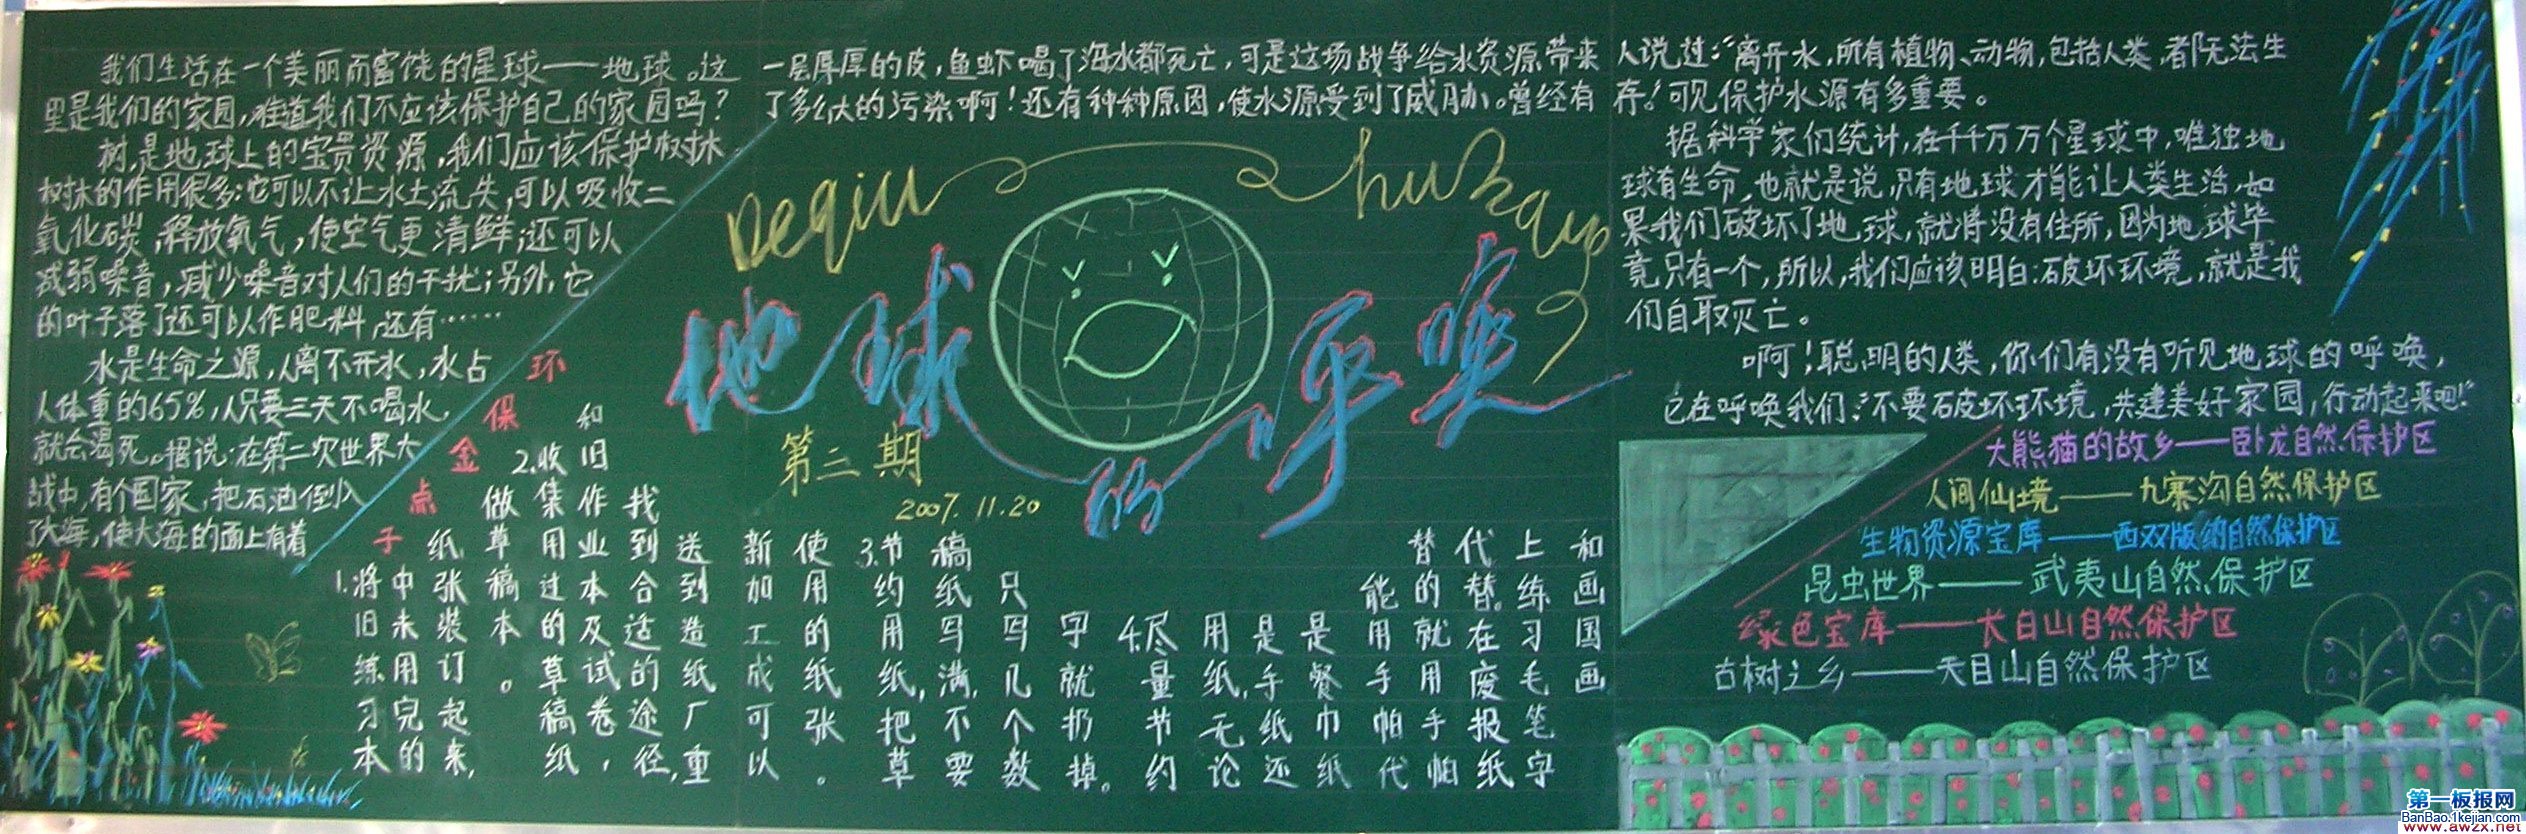 我们生活在一个美丽而富饶的星球——地球。这
里是我们的家园,难道我们不应该保护自己的家园吗?
树,是地球上的宝贵资源,我们应该保护树木。
树林的作用很多:它可以不让水土流失,可以吸收二
氧化碳,释放氧气,使空气更清鲜;还可以
减弱噪音,减少噪音对人们的干扰;另外,它
的叶子落了还可以作肥料,还有……
水是生命之源,人离不开水,水占
人体重的65%,人只要三天不喝水,
就会渴死。据说:在第二次世界大
战中,有个国家,把石油倒入
了大海,使大海的面上有着
一层厚厚的皮,鱼虾喝了海水都死亡,可是这场战争给水资源带来
了多么大的污染啊!还有种种原因,使水源受到了威胁。曾经有
人说过:“离开水,所有植物、动物,包括人类,都无法生
存。”可见保护水源有多重要。
据科学家们统计,在千千万万个星球中,唯独地
球有生命,也就是说,只有地球才能让人类生活,如
果我们破坏了地球,就将没有住所,因为地球毕
竟只有一个,所以,我们应该明白:破坏环境,就是我
们自取灭亡。
啊!聪明的人类,你们有没有听见地球的呼唤,
它在呼唤我们:“不要破坏环境,共建美好家园,行动起来吧!”
Deqiu huhuan
地球的呼唤
第三期
2007.11.20
环保金点子
1.将旧练习本
中未用完的
纸张装订起来,
做草稿本。
2.收集用过的草稿纸,
和旧作业本及试卷,
找到合适的途径,
送到造纸厂重
新加工成可以
使用的纸张。
3.节约用纸,把草
稿纸写满,不要
只写几个数
字就扔掉。
4.尽量节约
用纸,无论
是手纸还
是餐巾纸
能用手帕代
替的就用手帕
代替。在废报纸
上练习毛笔字
和画国画
大熊猫的故乡——卧龙自然保护区
人间仙境——九寨沟自然保护区
生物资源宝库——西双版纳自然保护区
昆虫世界——武夷山自然保护区
绿色宝库——长白山自然保护区
古树之乡——天目山自然保护区
第一板报网
BanBao.1kejian.com
www.awzx.net